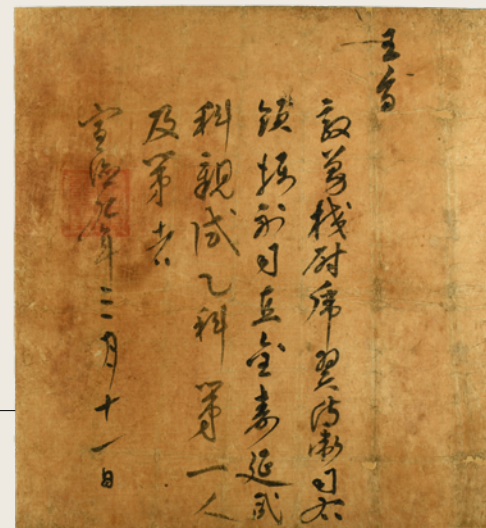 王旨
敦勇校尉虎翼侍衛司右
領攝副司直金壽延武
科親試乙科第一人
及第者
宣德九年三月十一日